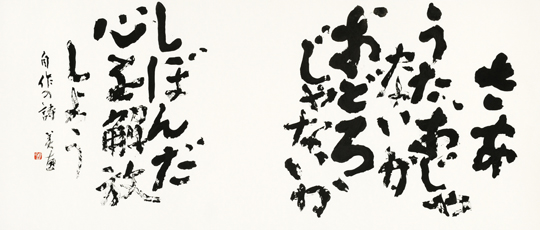 さあ
うたおうじゃ
ないか
おどろう
じゃないか
しぼんだ
心を解放
しよう
自作の詩